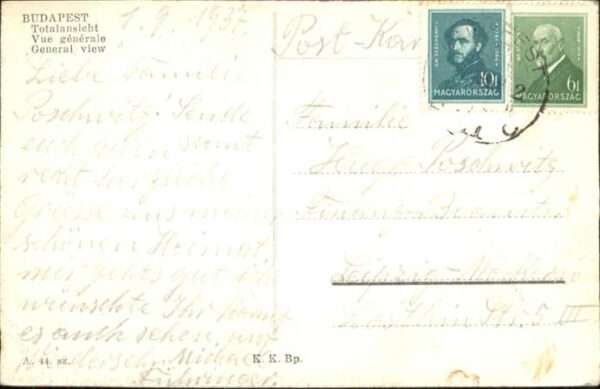 BUDAPEST
Totalansicht
Vue générale
General view
1.9.1937
Liebe Familie
Poschwitz! Sende
euch allen samt
recht herzliche
Grüsse aus meiner
schönen Heimat,
mir geht's gut ich
wünschte Ihr könnt
es auch sehen, auf
Wiedersehn Michael
Führinger.
A. 44. sz.
K. K. Bp.
Post-Kar
10f
MAGYARORSZÁG
6f
MAGYARORSZÁG
Familie
Hugo Poschwitz
Finanz-Beamter
Leipzig
Str. 5 III